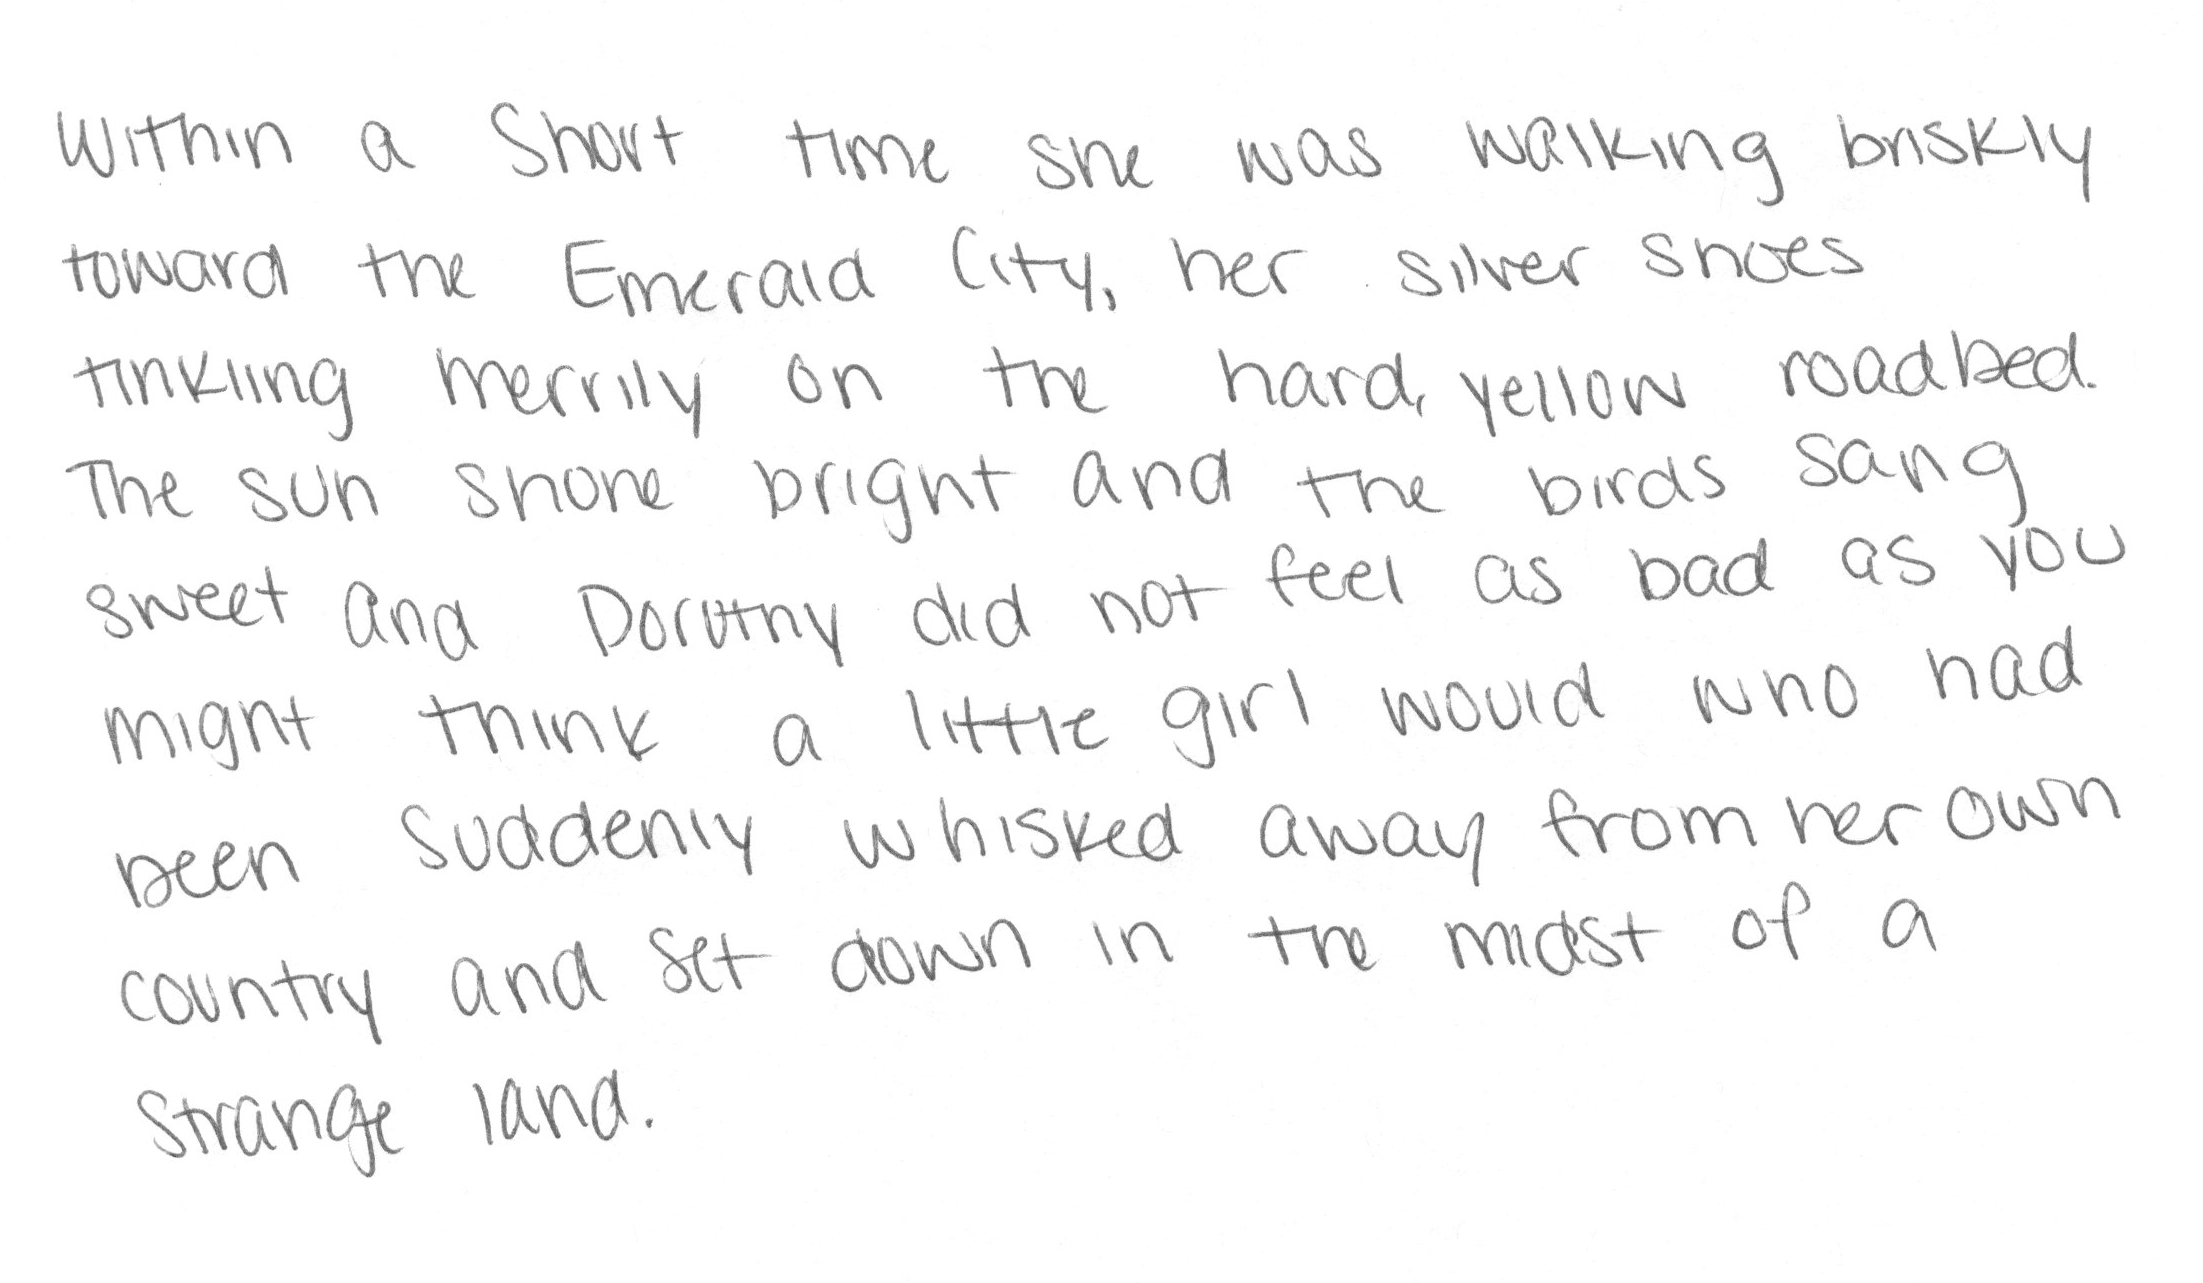 Within a Short time she was walking briskly
toward the Emerald City, her silver shoes
tinkling merrily on the hard, yellow roadbed.
The sun shone bright and the birds sang
sweet and Dorothy did not feel as bad as you
might think a little girl would who had
been suddenly whisked away from her own
country and set down in the midst of a
strange land.